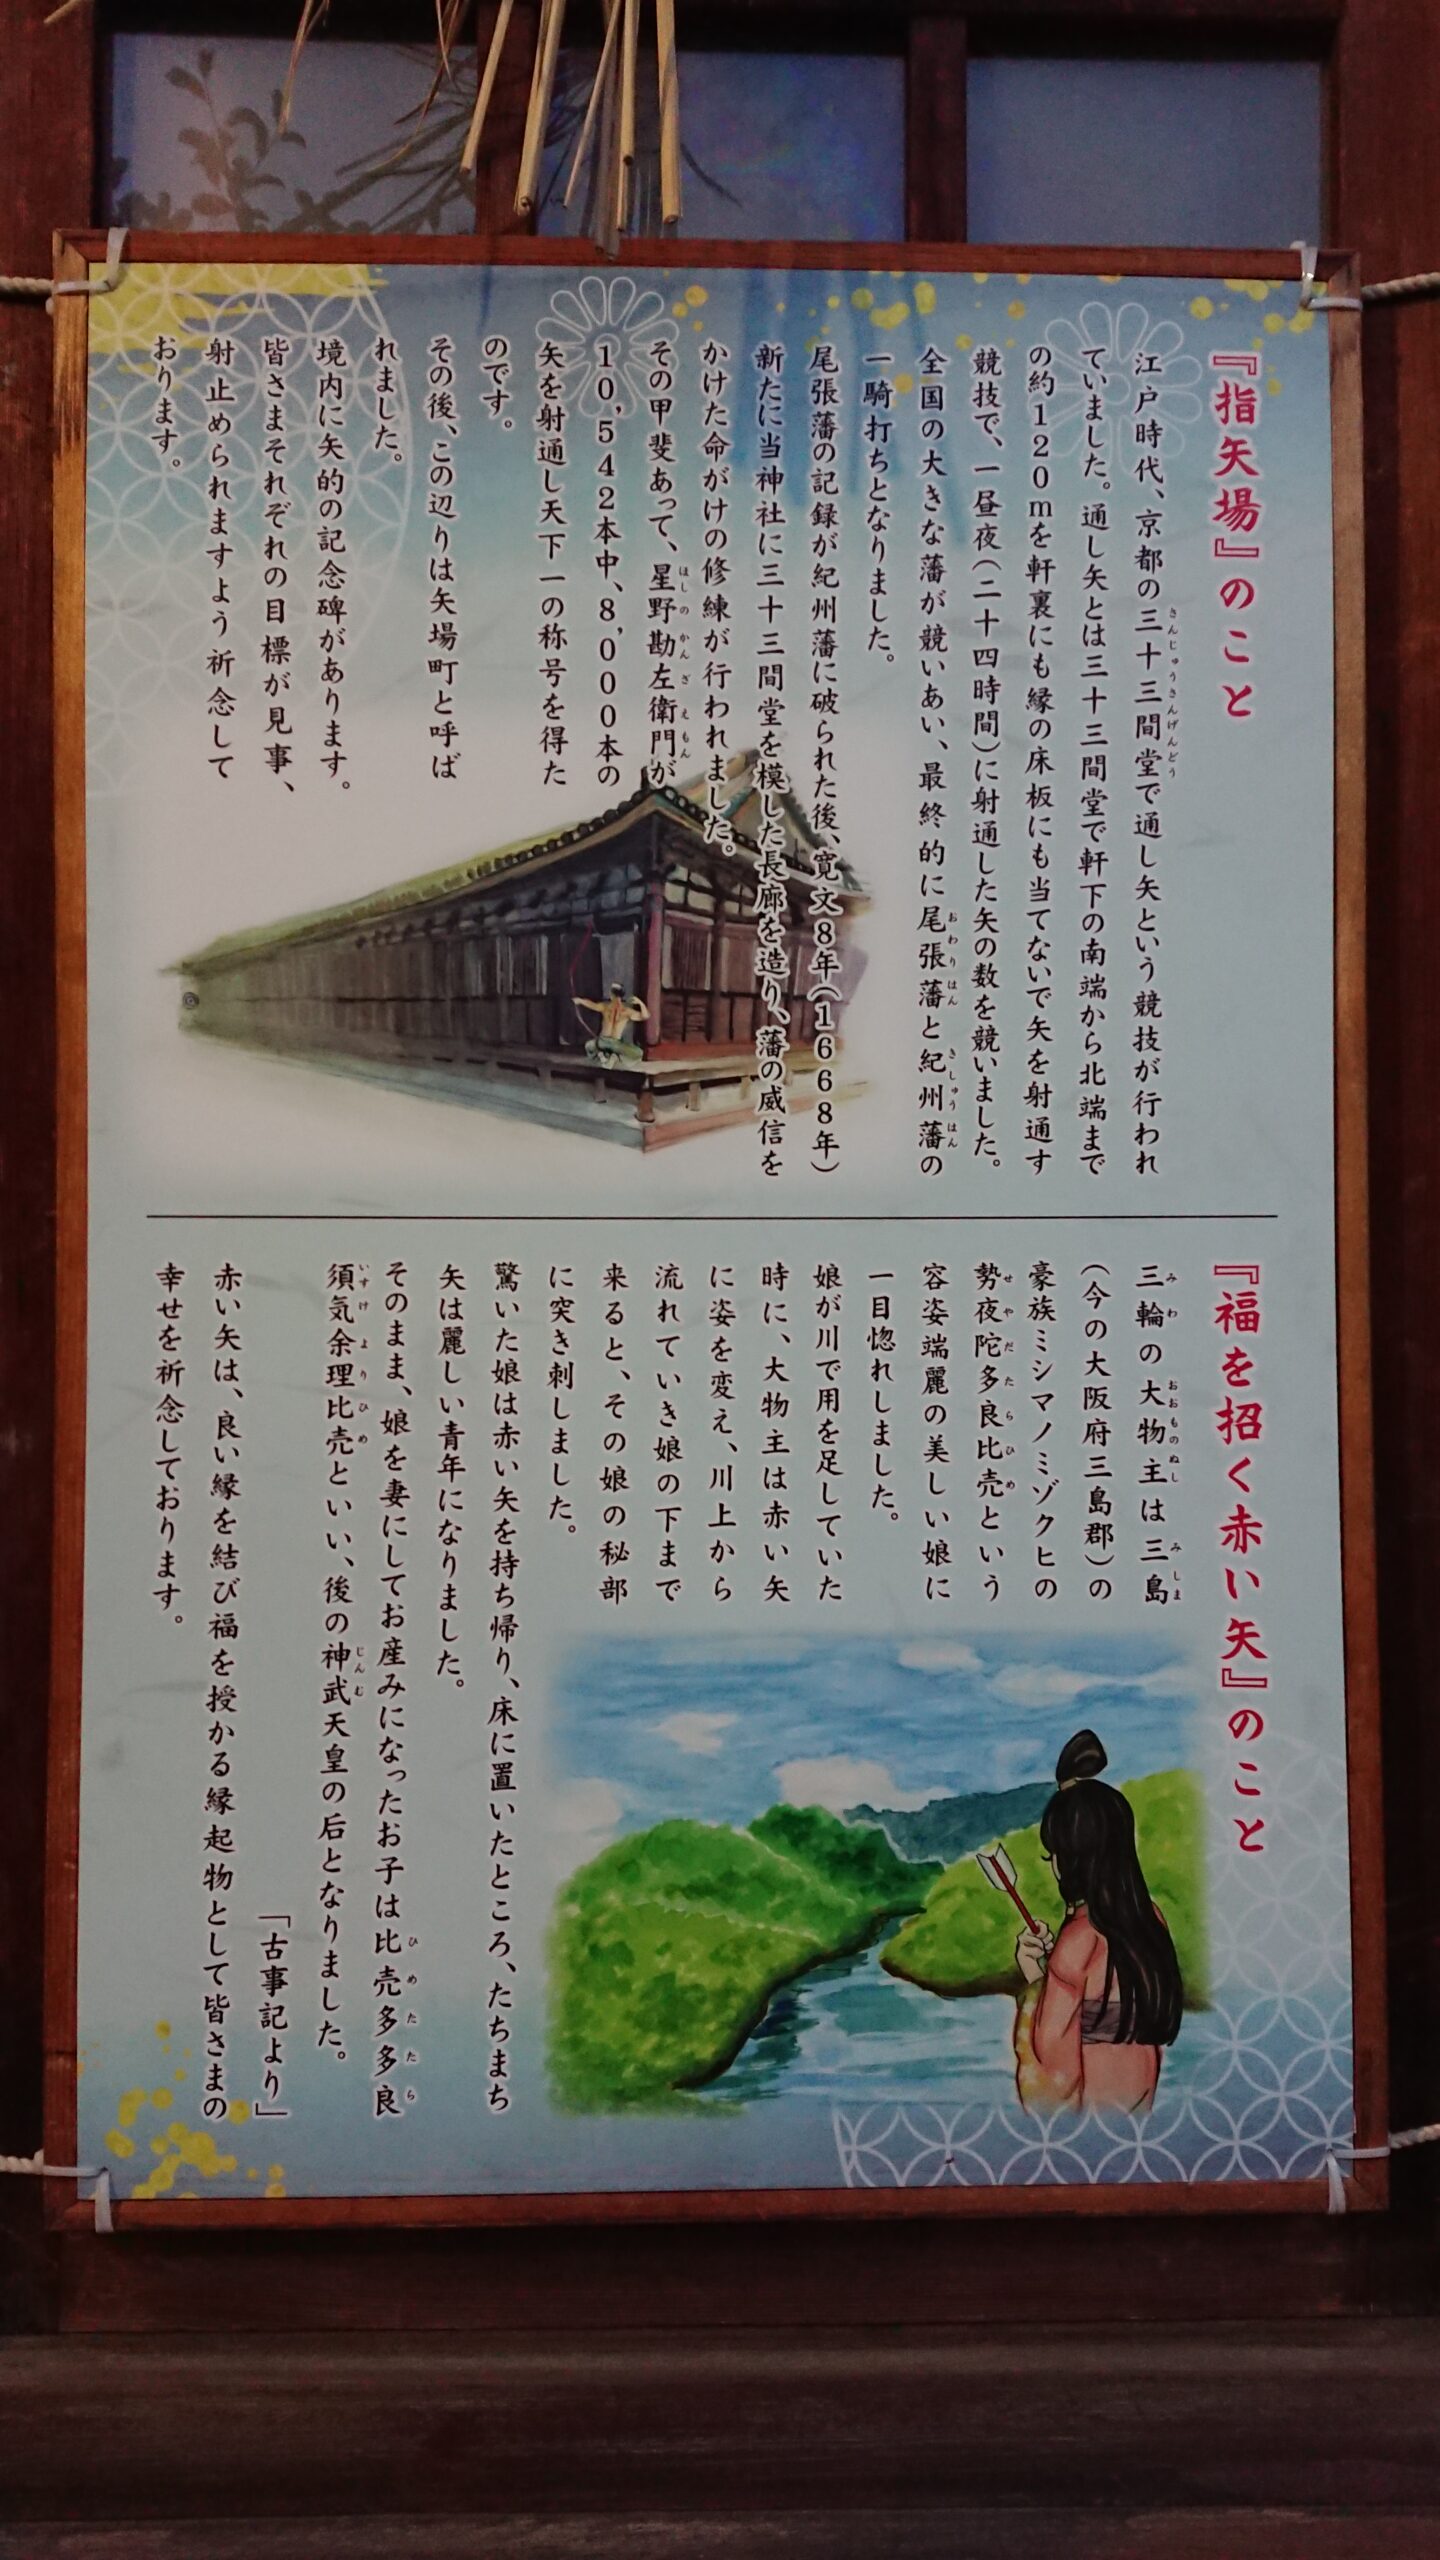 『指矢場』のこと
江戸時代、京都の三十三間堂で通し矢という競技が行われ
ていました。通し矢とは三十三間堂で軒下の南端から北端まで
の約120mを軒裏にも縁の床板にも当てないで矢を射通す
競技で、一昼夜(二十四時間)に射通した矢の数を競いました。
全国の大きな藩が競いあい、最終的に尾張藩と紀州藩の
一騎打ちとなりました。
尾張藩の記録が紀州藩に破られた後、寛文8年(1668年)
新たに当神社に三十三間堂を模した長廊を造り、藩の威信を
かけた命がけの修練が行われました。
その甲斐あって、星野勘左衛門が
10,542本中、8,000本の
矢を射通し天下一の称号を得た
のです。
その後、この辺りは矢場町と呼ば
れました。
境内に矢的の記念碑があります。
皆さまそれぞれの目標が見事、
射止められますよう祈念して
おります。
『福を招く赤い矢』のこと
三輪の大物主は三島
(今の大阪府三島郡)の
豪族ミシマノミゾクヒの
勢夜陀多良比売という
容姿端麗の美しい娘に
一目惚れしました。
娘が川で用を足していた
時に、大物主は赤い矢
に姿を変え、川上から
流れていき娘の下まで
来ると、その娘の秘部
に突き刺しました。
驚いた娘は赤い矢を持ち帰り、床に置いたところ、たちまち
矢は麗しい青年になりました。
そのまま、娘を妻にしてお産みになったお子は比売多多良
須気余理比売といい、後の神武天皇の后となりました。
「古事記より」
赤い矢は、良い縁を結び福を授かる縁起物として皆さまの
幸せを祈念しております。